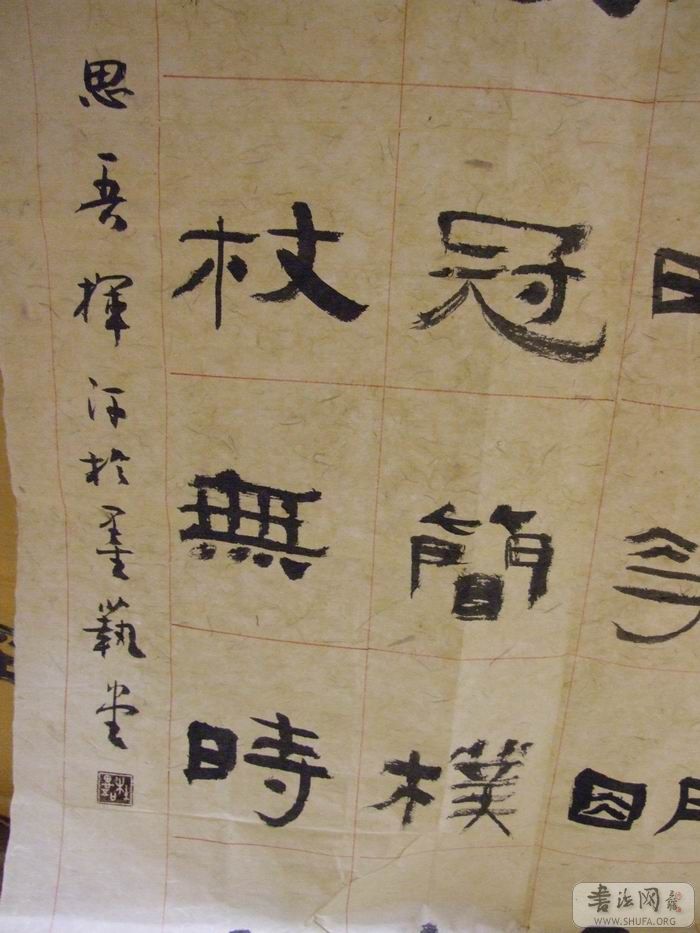 冠簡樸
杖無時
思吾揮汗於墨藝堂
书法网
WWW.SHUFA.ORG